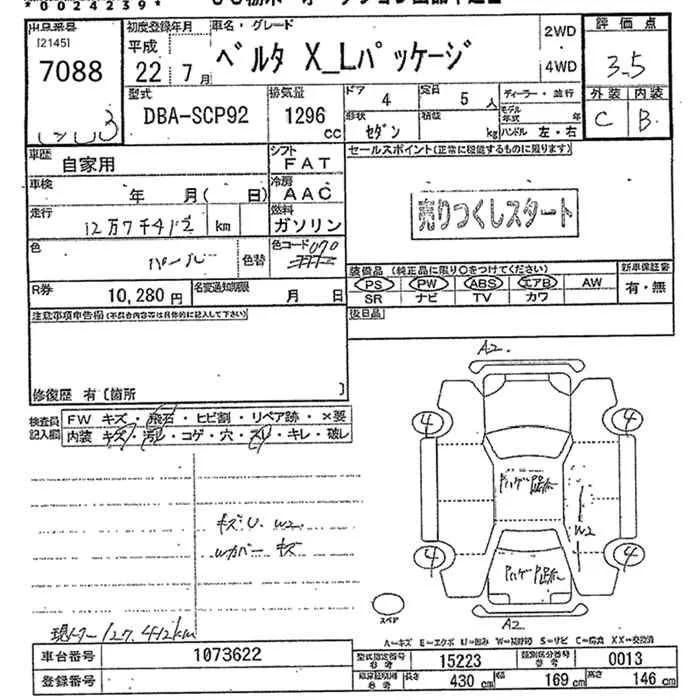 *0024239*
出品番号 初度登録年月 車名・グレード 2WD 評価点
[2145]
7088 平成 22年 7月 ベルタ X_Lパッケージ 4WD 3.5
型式 排気量 ドア 4 定員 5人 ディーラー・並行 外装 内装
DBA-SCP92 1296 cc 形状 セダン 積載 kg モデル年式 年 C B
ハンドル 左・右
車歴 自家用 シフト FAT セールスポイント(正常に機能するものに限ります)
車検 年 月( 日) 冷房 AAC
走行 12万7千4百 km 燃料 ガソリン 売りつくしスタート
色 パール 色替 色コード 070
装備品 (純正品に限り○をつけてください) 新車保証書
PS PW ABS エアB AW 有・無
SR ナビ TV カワ
R券 10,280円 名変通知期限 月 日
注意事項申告欄(不具合内容等は具体的に記入して下さい) 後日品
修復歴 有〔箇所 〕
検査員記入欄 FW キズ・飛石・ヒビ割・リペア跡・×要
内装 キズ・汚レ・コゲ・穴・スレ・キレ・破レ
A2.
4 4
W2
キズU. W2
Wカバー キズ
4 4
スペア
A2
現メーター 127,412km
A=キズ E=エクボ U=凹み W=補修跡 S=サビ C=腐食 XX=交換済
車台番号 1073622 型式指定番号 参考 15223 類別区分番号 参考 0013
登録番号 長さ 430 cm 幅 169 cm 高さ 146 cm